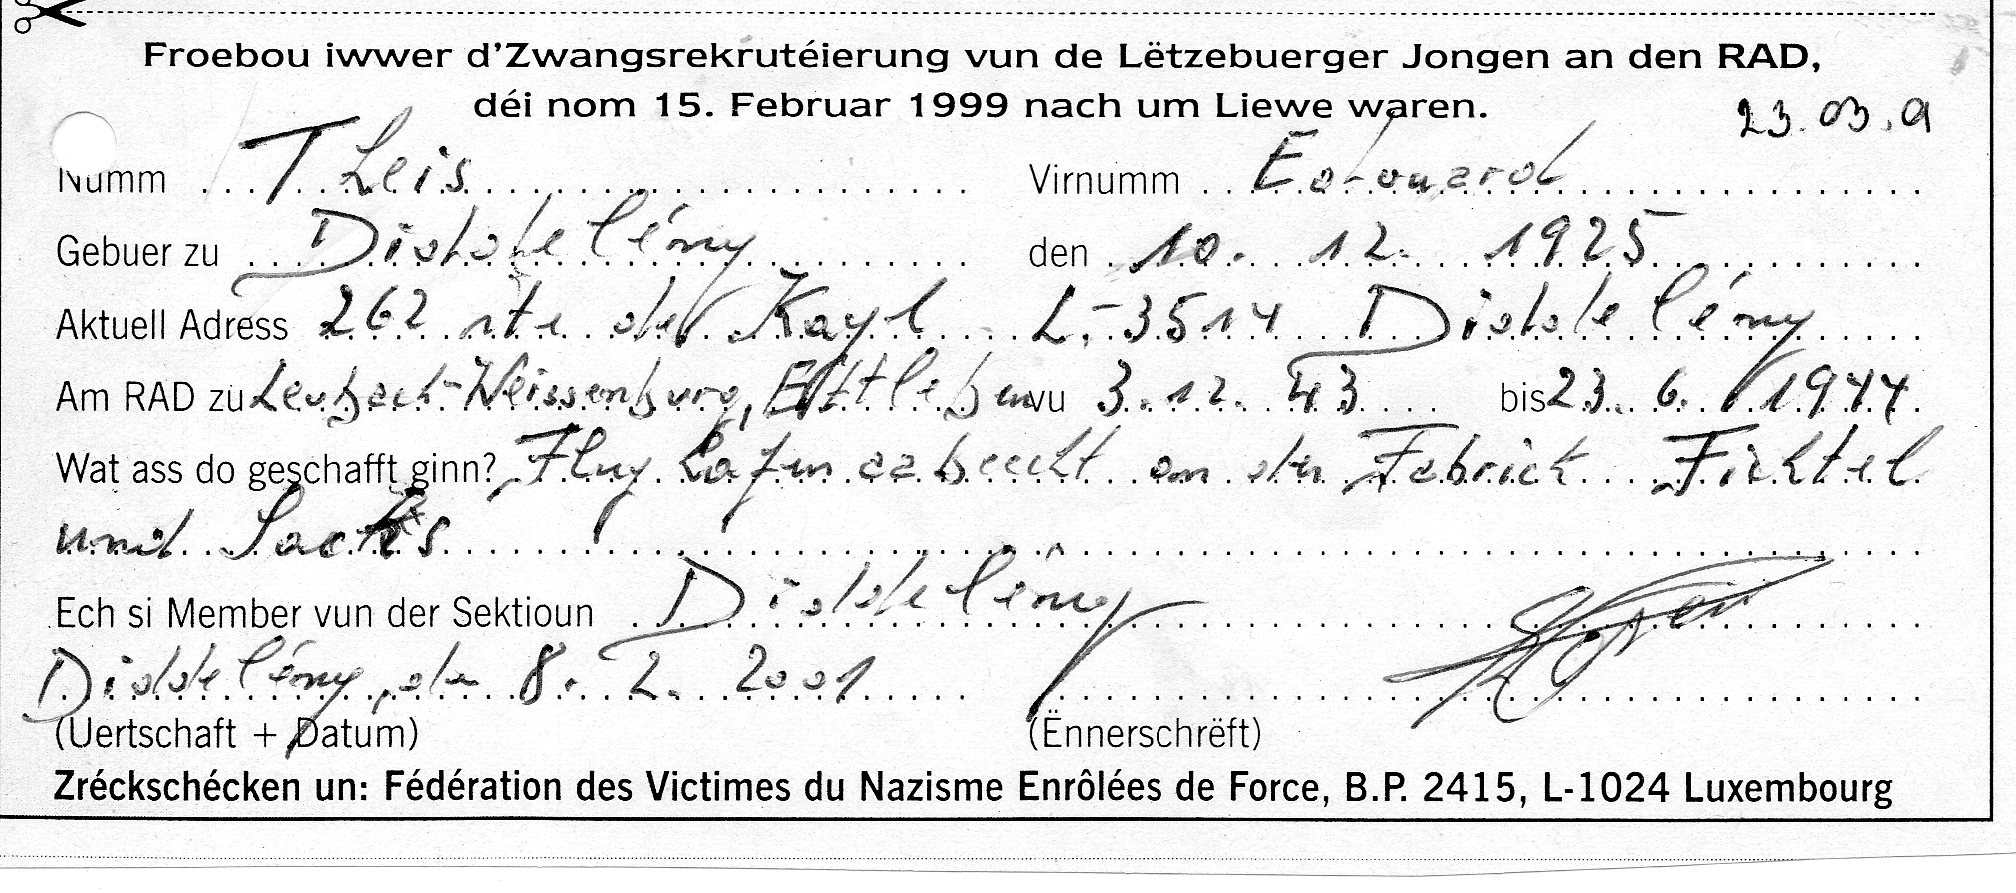 Froebou iwwer d'Zwangsrekrutéierung vun de Lëtzebuerger Jongen an den RAD,
déi nom 15. Februar 1999 nach um Liewe waren.
23.03.9
Numm Theis Virnumm Edouard
Gebuer zu Diddeléng den 10. 12. 1925
Aktuell Adress 262 rte de Kayl L-3514 Diddeléng
Am RAD zu Leubach-Weissenburg, Ettleben vu 3.12.43 bis 23.6.1944
Wat ass do geschafft ginn? Flughafen an der Fabrick Fichtel
und Sachs
Ech si Member vun der Sektioun Diddeléng
Diddeléng, de 8. 2. 2001
(Uertschaft + Datum) (Ënnerschrëft)
Zréckschécken un: Fédération des Victimes du Nazisme Enrôlées de Force, B.P. 2415, L-1024 Luxembourg